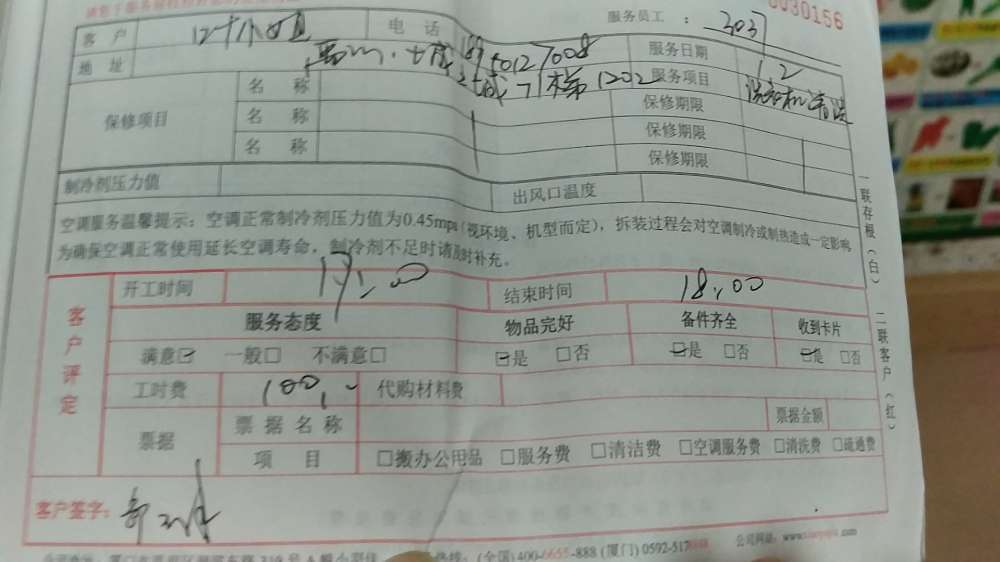 服务员工： 3037
0030156
客 户 电 话 服务日期 12
地 址 服务项目 洗衣机清洗
保修项目
名 称 保修期限
名 称 保修期限
名 称 保修期限
制冷剂压力值 出风口温度
空调服务温馨提示：空调正常制冷剂压力值为0.45mpa(视环境、机型而定)，拆装过程会对空调制冷或制热造成一定影响
为确保空调正常使用延长空调寿命，制冷剂不足时请及时补充。
一联存根(白) 二联客户(红)
客户评定
开工时间 17:00 结束时间 18:00
服务态度 物品完好 备件齐全 收到卡片
满意☑ 一般□ 不满意□ ☑是 □否 ☑是 □否 ☑是 □否
工时费 100 代购材料费
票据 票据名称 票据金额
项 目 □搬办公用品 □服务费 □清洁费 □空调服务费 □清洗费 □疏通费
客户签字：
(全国)400-6655-888 (厦门) 0592-517 公司网站：